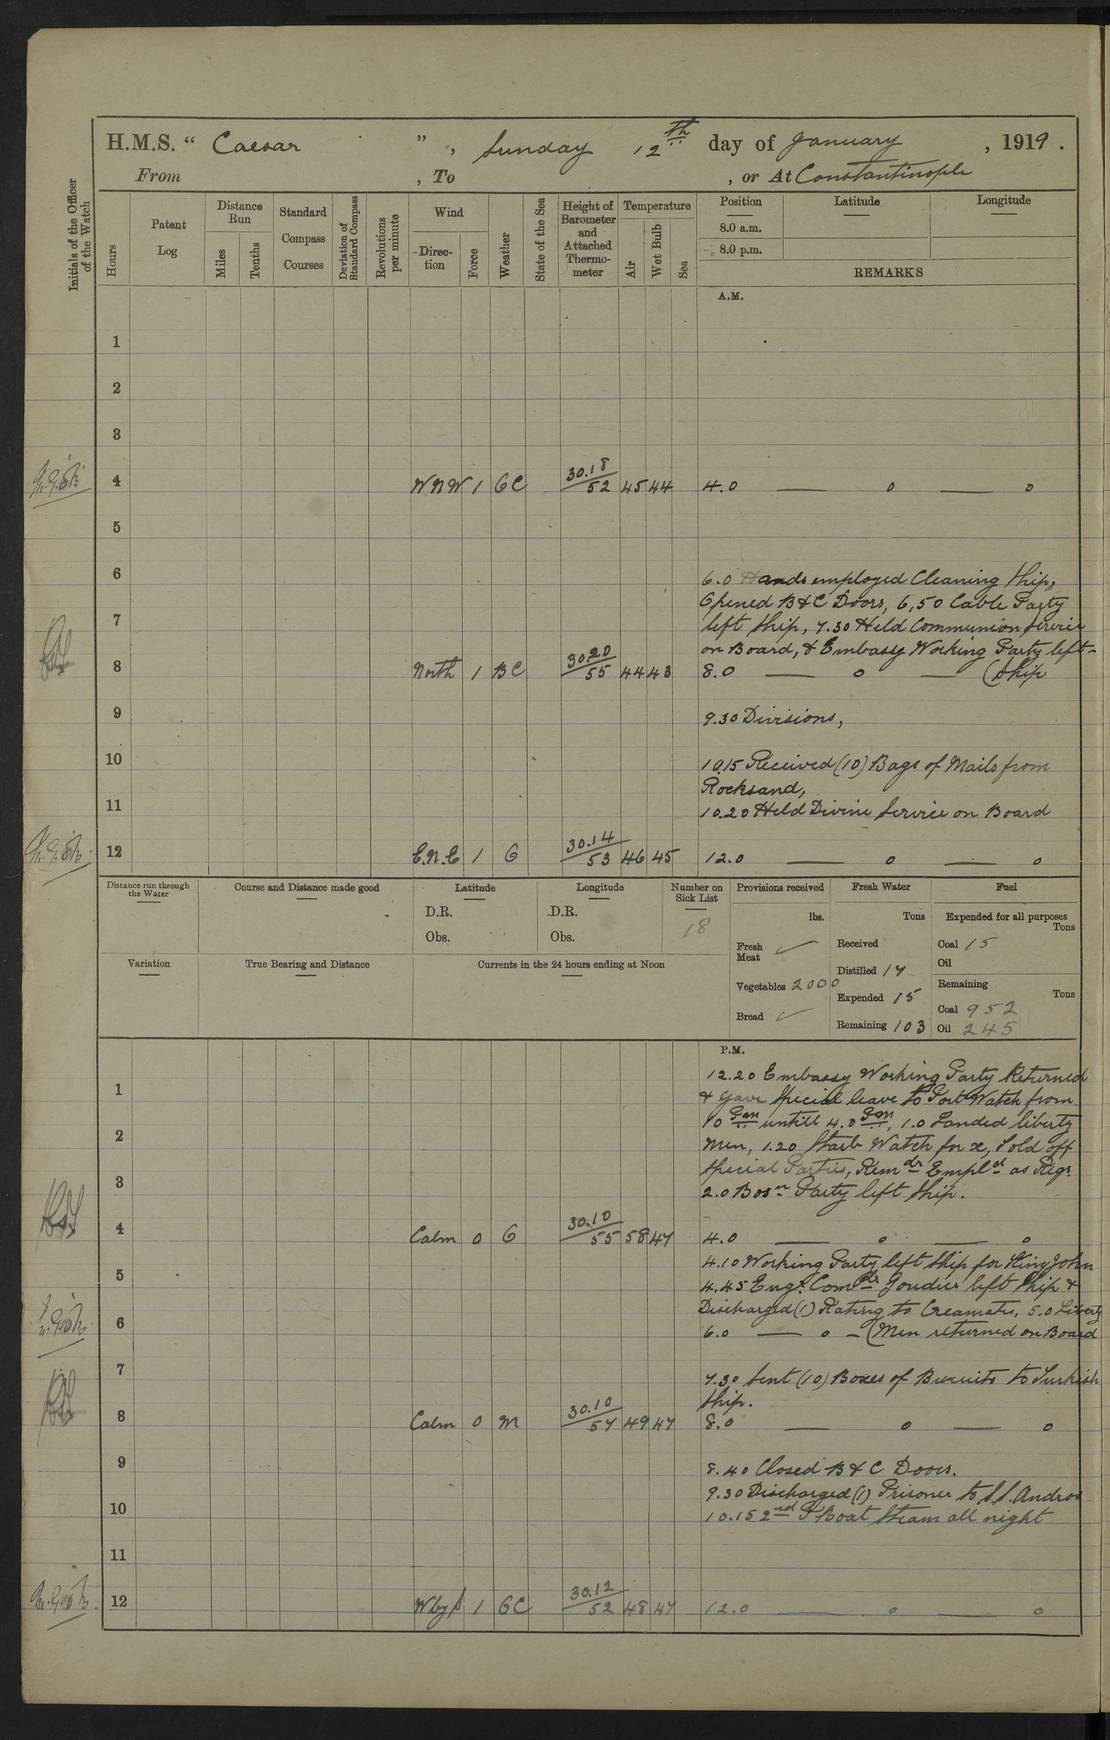 H.M.S. “ Caesar ” , Sunday 12th day of January , 1919 .
From , To , or At Constantinople
Initials of the Officer of the Watch
Hours
Patent Log
Distance Run
Miles
Tenths
Standard Compass Courses
Deviation of Standard Compass
Revolutions per minute
Wind
Direc- tion
Force
Weather
State of the Sea
Height of Barometer and Attached Thermo- meter
Temperature
Air
Wet Bulb
Sea
Position
Latitude
Longitude
8.0 a.m.
8.0 p.m.
REMARKS
A.M.
1
2
3
4 WNW 1 GC 30.18/52 45 44 4.0 — o — o
5
6 6.0 Hands employed Cleaning Ship,
Opened B&C Doors, 6,50 Cable Party
7 left Ship, 7.30 Held Communion Service
on Board, & Embassy Working Party left-
8 North 1 BC 30.20/55 44 43 8.0 — o — (Ship
9 9.30 Divisions,
10 10.15 Received (10) Bags of Mails from
Rocksand,
11 10.20 Held Divine Service on Board
12 E.N.E 1 G 30.14/53 46 45 12.0 — o — o
Distance run through the Water
Course and Distance made good
Latitude
D.R.
Obs.
Longitude
D.R.
Obs.
Number on Sick List
18
Provisions received
lbs.
Fresh Meat ✓
Vegetables 2000
Bread ✓
Fresh Water
Tons
Received
Distilled 14
Expended 15
Remaining 103
Fuel
Expended for all purposes
Tons
Coal 15
Oil
Remaining
Tons
Coal 952
Oil 245
Variation
True Bearing and Distance
Currents in the 24 hours ending at Noon
P.M.
12.20 Embassy Working Party Returned
1 & gave special leave to Port Watch from
untill 4.0 pm, 1.0 Landed liberty
2 Men, 1.20 Starb Watch for x, Told off
Special Parties, Remdr Empled as Reqr.
3 2.0 Bosn Party left Ship.
4 Calm 0 G 30.10/55 58 47 4.0 — o — o
4.10 Working Party left Ship for King John
5 4.45 Engr. Comdr Goudie left Ship &
Discharged (1) Rating to 5.0 Liberty
6 6.0 — o — (Men returned on Board
7 7.30 Sent (10) Boxes of Biscuits to Turkish
Ship.
8 Calm 0 M 30.10/57 49 47 8.0 — o — o
9 8.40 Closed B & C Doors.
9.30 Discharged (1) Prisoner to S.S. Andros
10 10.15 2nd P Boat Steam all night
11
12 1 GC 30.12/52 48 47 12.0 — o — o